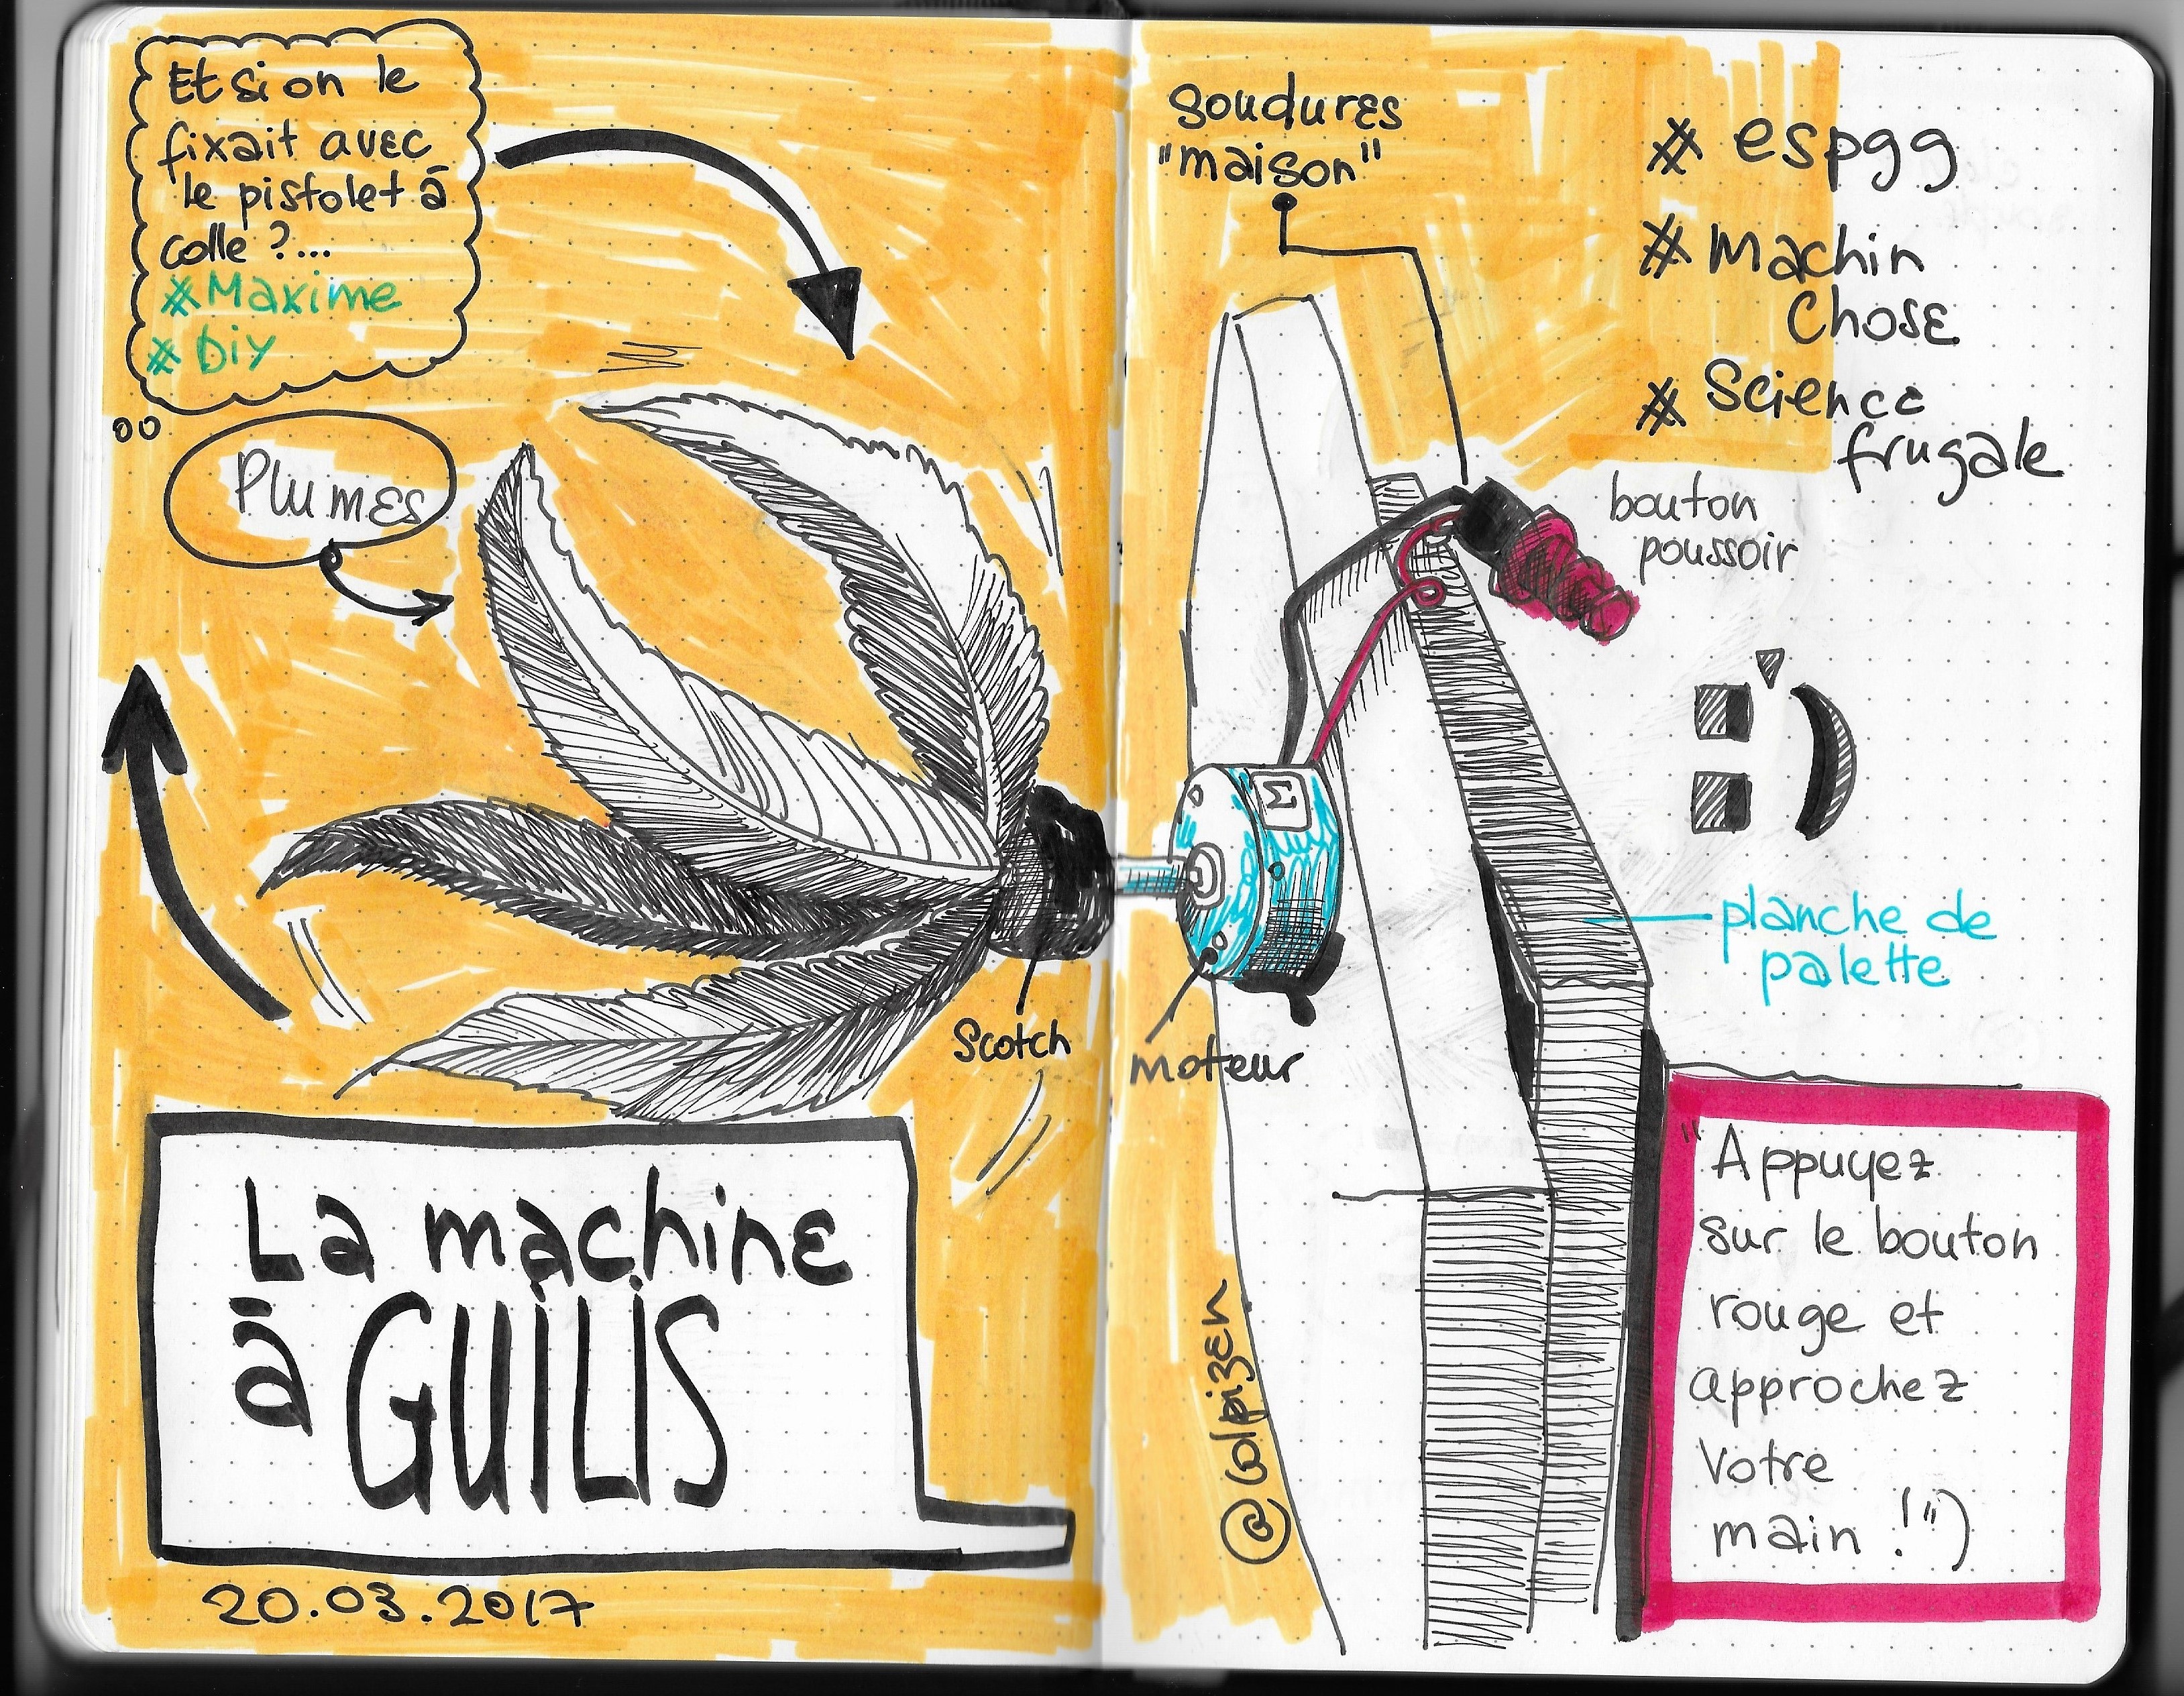 Et si on le
fixait avec
le pistolet à
colle ?...
#Maxime
#Diy
Plumes
Scotch
La machine
à GUILIS
20.03.2017
Soudures
"maison"
# espgg
# Machin
Chose
# Science
frugale
bouton
poussoir
M
planche de
palette
moteur
"Appuyez
sur le bouton
rouge et
approchez
Votre
main !")